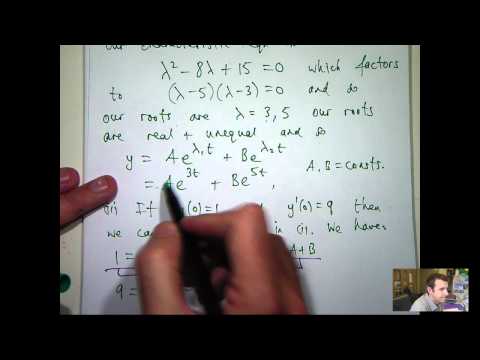 our characteristic eqn is
λ² − 8λ + 15 = 0 which factors
to (λ−5)(λ−3) = 0 and so
our roots are λ = 3, 5 our roots
are real + unequal and so
y = Ae^λ₁t + Be^λ₂t
= Ae^3t + Be^5t, A, B = consts.
(ii) If y(0) = 1 y'(0) = 9 then
we ca in (i). We have:
1 = A + B
9 =